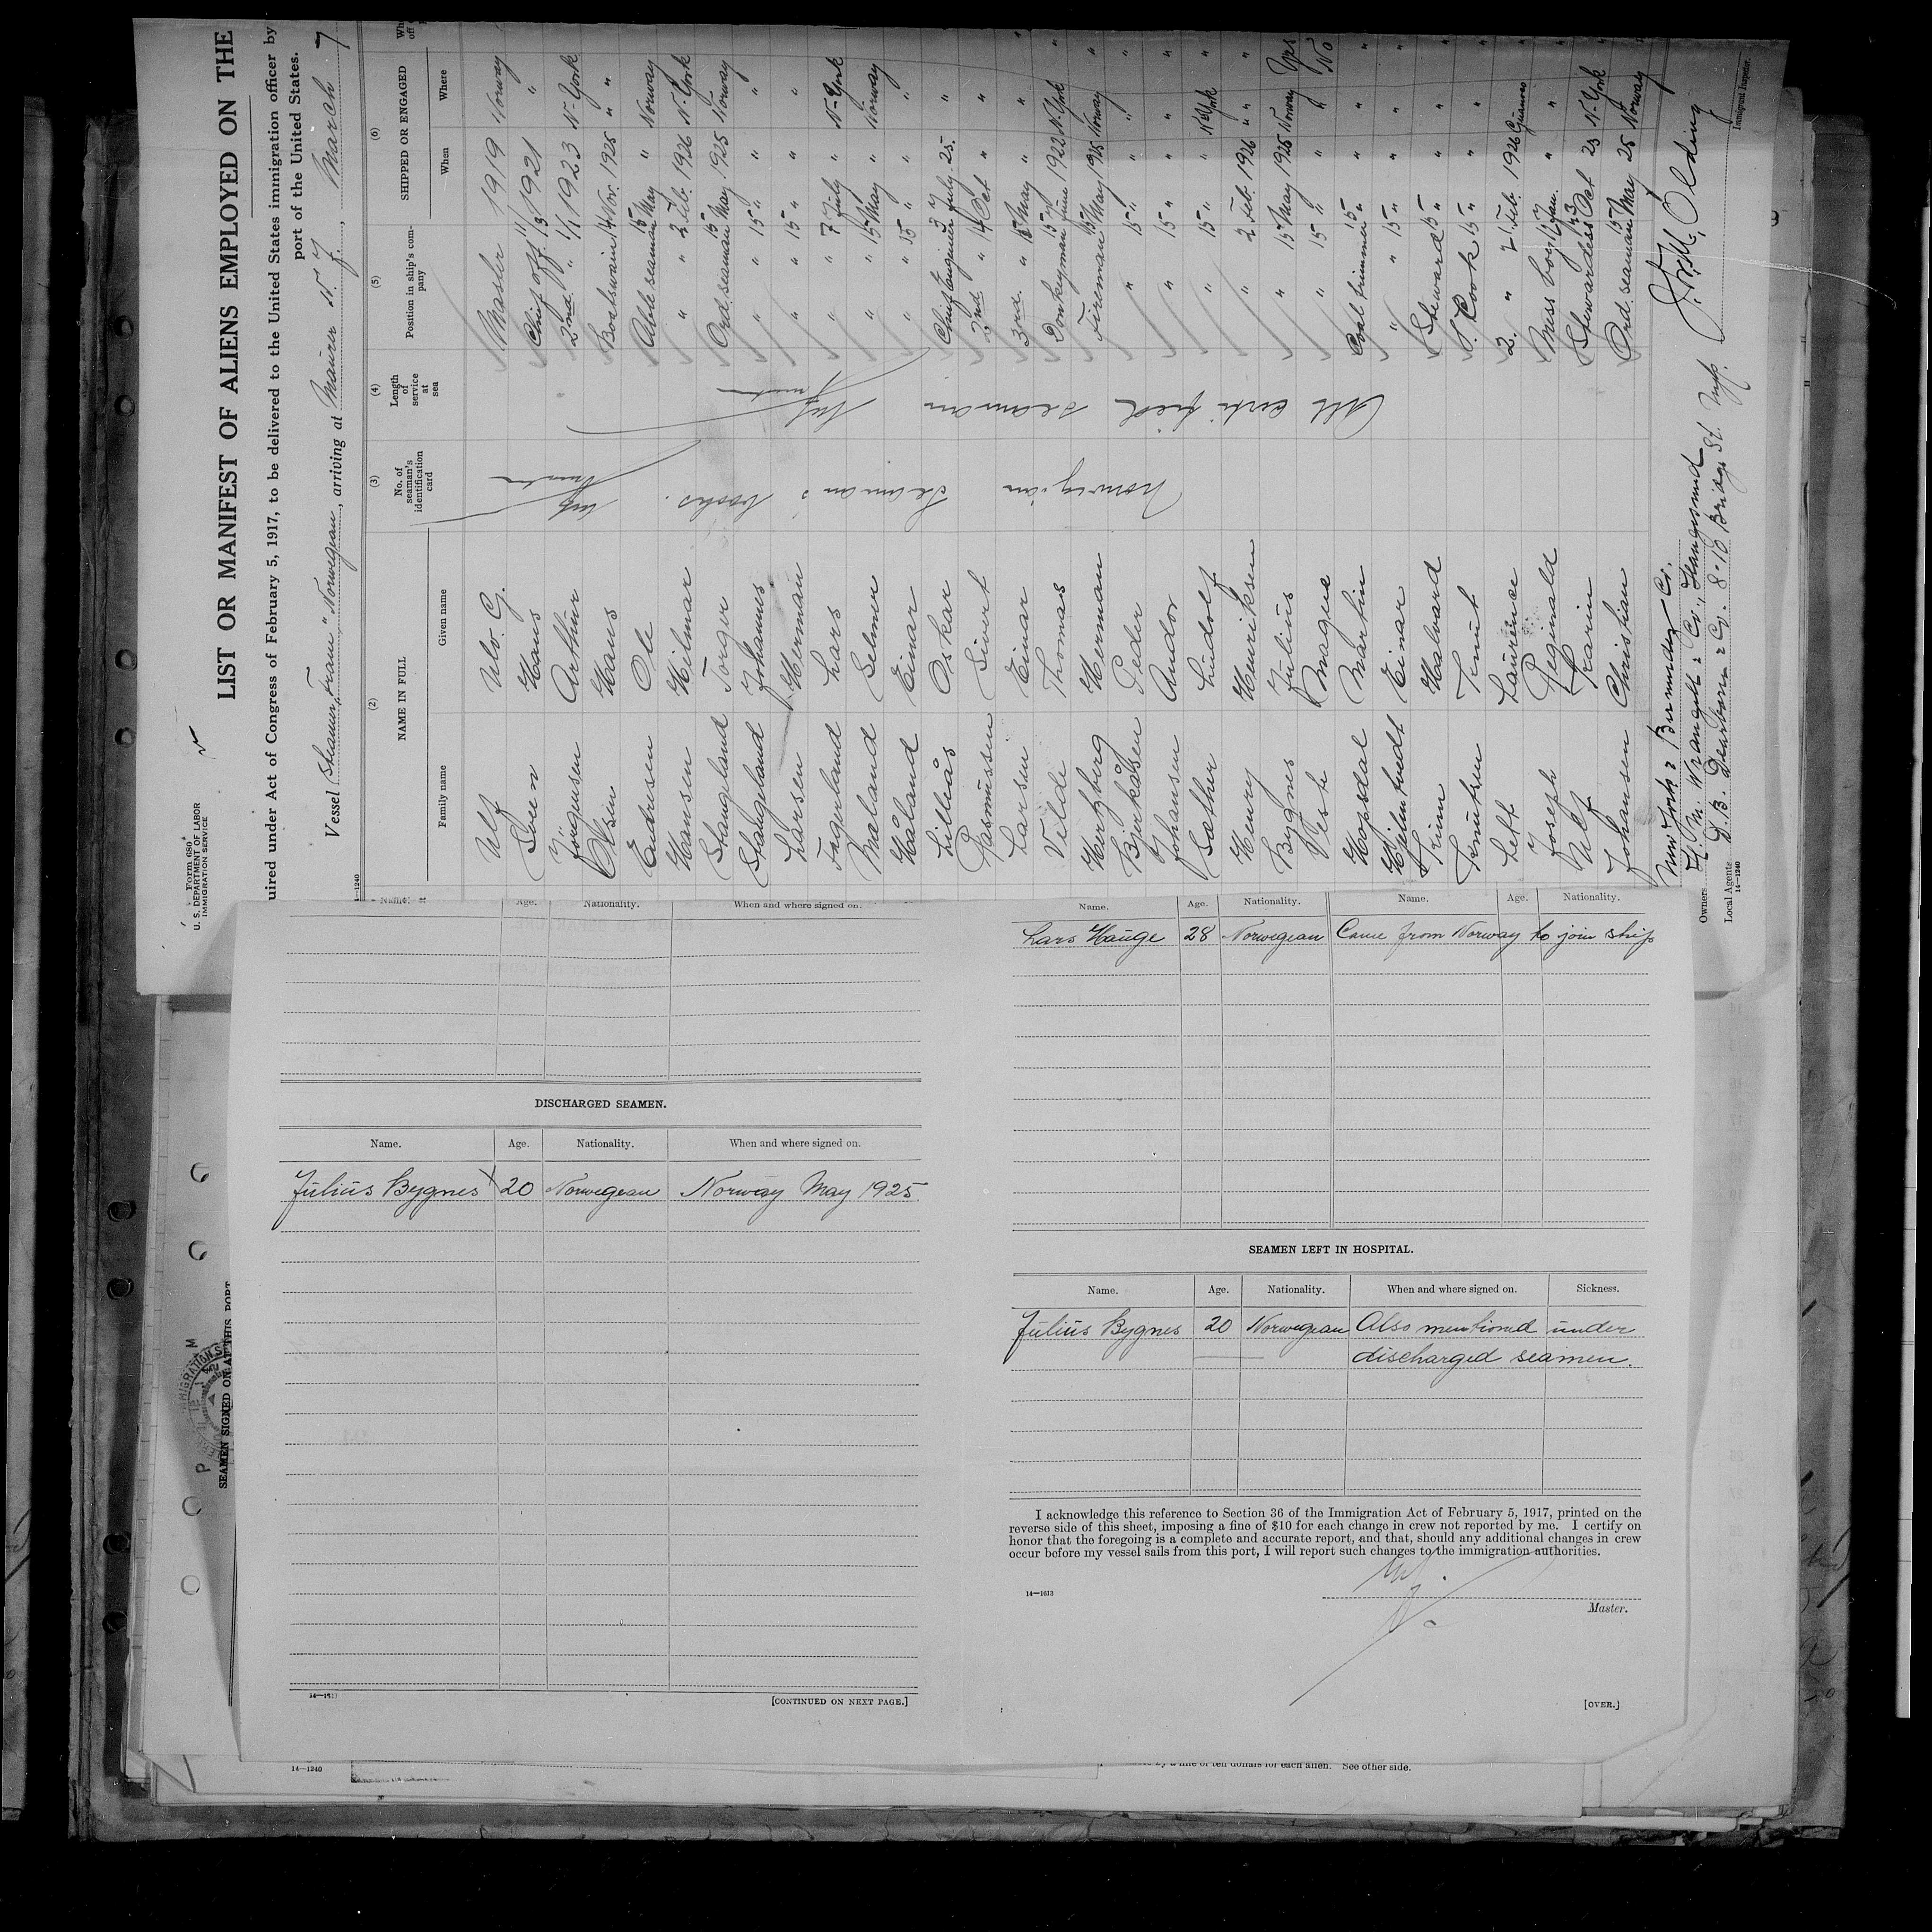 Form 689
U. S. DEPARTMENT OF LABOR
IMMIGRATION SERVICE
LIST OR MANIFEST OF ALIENS EMPLOYED ON THE
uired under Act of Congress of February 5, 1917, to be delivered to the United States immigration officer by
port of the United States.
Vessel Steamer "Fram" Norwegian, arriving at N. Y., March 7
14—1240
(2) (3) (4) (5) (6)
NAME IN FULL
No. of seaman's identification card
Length of service at sea
Position in ship's company
SHIPPED OR ENGAGED
Family name Given name When Where
Ulf Master 1919 Norway
Sven Hans Chief off. 1921 "
Jörgensen Arthur 2nd " 1923 N-York
Olsen Hans Boatswain 14 Nov. 1925 " "
Endresen Ole Able seaman 15 May " Norway
Hansen Hilmar " 2 Feb. 1926 N-York
Stangeland Torger Ord. seaman 15 May 1925 Norway
Stangeland Johannes " 15 " " "
Larsen Herman " 15 " " "
Fagerland Lars " 7 July " N-York
Mæland Selmer " 15 May " Norway
Håland Einar " 15 " " "
Lilliås Oskar July 25. "
Rasmussen Sivert 2nd " 14 Oct " "
Larsen Einar 3rd. " 15 May " "
Velde Thomas Donkeyman June 1922 N-York
Hertzberg Herman Fireman 15 May 1925 Norway
Bjerkåsen Peder " 15 " " "
Johansen Andor " 15 " " "
Sæther Ludolf " 15 " " N-York
Henry Henriksen " 2 Feb. 1926 " "
Bygnes Julius " 15 May 1925 Norway Yes
Veste Magne " 15 " " " No
Hopsdal Martin Coal trimmer 15 " " "
Hjelmtvedt Einar " 15 " " "
Halvard Steward 15 " " "
Knutsen Knut S. Cook 15 " " "
Lett Laurence 2. " 2 Feb. 1926
Joseph Reginald Mess boy Jan. " "
Ulf Karin Stewardess Oct 23 N-York
Johansen Christian Ord. seaman 15 May 25 Norway
Norwegian Seaman's books.
All certified seaman
New York & Bermuda Co.
Owners Haugesund
Local Agents 8-10 Bridge St.
14—1240
Immigrant Inspector.
Name. Age. Nationality. When and where signed on.
DISCHARGED SEAMEN.
Name. Age. Nationality. When and where signed on.
Julius Bygnes 20 Norwegean Norway May 1925
[CONTINUED ON NEXT PAGE.]
Name. Age. Nationality. Name. Age. Nationality.
Lars Hauge 28 Norwegean Came from Norway to join ship
SEAMEN LEFT IN HOSPITAL.
Name. Age. Nationality. When and where signed on. Sickness.
Julius Bygnes 20 Norwegean Also mentioned under
discharged seamen.
I acknowledge this reference to Section 36 of the Immigration Act of February 5, 1917, printed on the
reverse side of this sheet, imposing a fine of $10 for each change in crew not reported by me. I certify on
honor that the foregoing is a complete and accurate report, and that, should any additional changes in crew
occur before my vessel sails from this port, I will report such changes to the immigration authorities.
14—1613
Master.
[OVER.]
SEAMEN SIGNED ON AT THIS PORT
14—1240
fine of ten dollars for each alien. See other side.